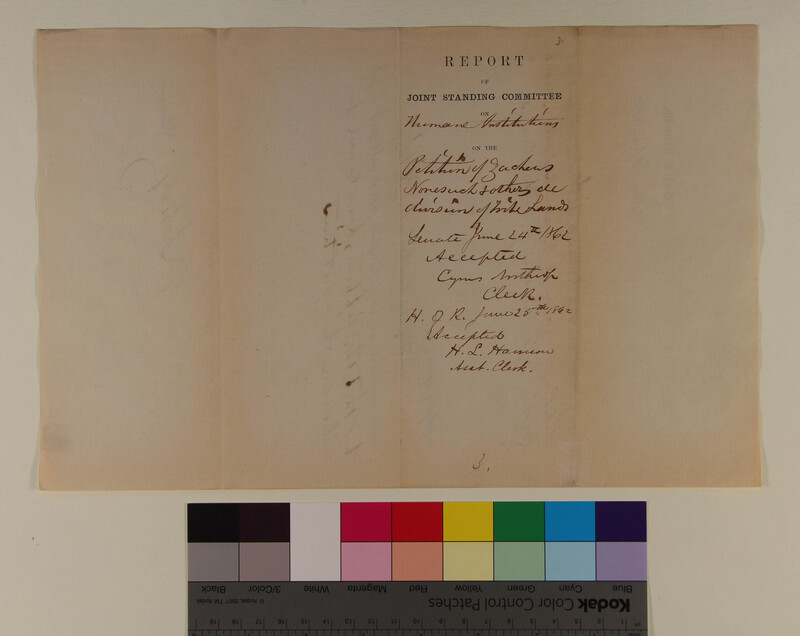 3
REPORT
OF
JOINT STANDING COMMITTEE
ON
Humane Institutions
ON THE
Petition of Zacheus
Nonesuch & others de
division of Tribe Lands
Senate June 24th 1862
Accepted
Cyrus Northrop
Clerk.
H. of R. June 25th 1862
Accepted
H. L. Harrison
Asst. Clerk.
3.
Blue
Cyan
Green
Yellow
Red
Magenta
White
3/Color
Black
Kodak Color Control Patches
© Kodak, 2007 TM: Kodak
1 2 3 4 5 6 7 8 9 10 11 12 13 14 15 16 17 18 19